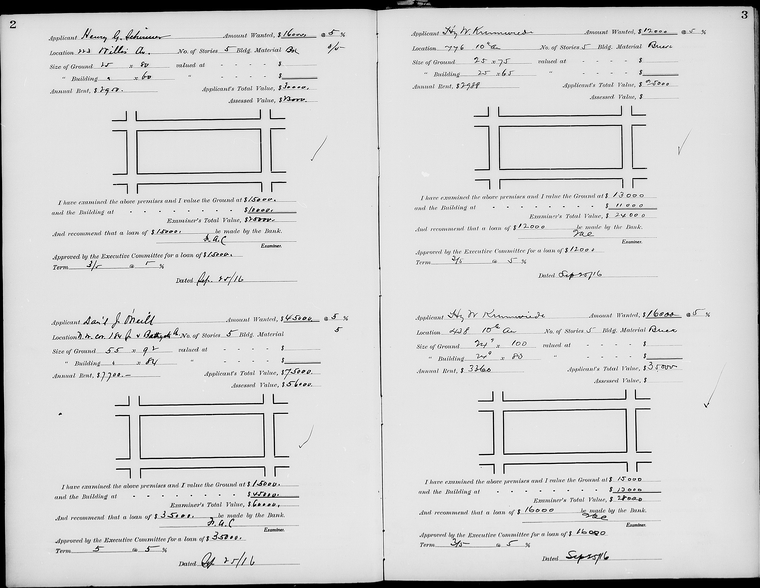 2
Applicant Henry G. Schirmer Amount Wanted, $16000 @ 5 %
Location 223 Willis Av. No. of Stories 5 Bldg. Material
Size of Ground 25 x 80 valued at - - - $
" Building " x 60 " - - - $
Annual Rent, $2900. Applicant's Total Value, $30000.
Assessed Value, $22000.
I have examined the above premises and I value the Ground at $15000.
and the Building at - - - - - - - $10000.
Examiner's Total Value, $25000.
And recommend that a loan of $15000. be made by the Bank.
F.A.C
Examiner.
Approved by the Executive Committee for a loan of $15000.
Term 3/5 @ 5 %
Dated Sep. 25/16
Applicant Dan'l J. O'Neill Amount Wanted, $45000. @ 5 %
Location N.W. Cor. 184 & No. of Stories 5 Bldg. Material 5
Size of Ground 55 x 92 valued at - - - $
" Building " x 84 " - - - $
Annual Rent, $7,700.— Applicant's Total Value, $75000.
Assessed Value, $56000.
I have examined the above premises and I value the Ground at $15000.
and the Building at - - - - - - - $45000.
Examiner's Total Value, $60000.
And recommend that a loan of $35000. be made by the Bank.
F.A.C
Examiner.
Approved by the Executive Committee for a loan of $35000.
Term 5 @ 5 %
Dated Sep 25/16
3
Applicant Hy W. Krumwiede Amount Wanted, $12000 @ 5 %
Location 776 10th Av No. of Stories 5 Bldg. Material Brick
Size of Ground 25 x 75 valued at - - - $
" Building 25 x 65 " - - - $
Annual Rent, $2988 Applicant's Total Value, $25000
Assessed Value, $
I have examined the above premises and I value the Ground at $13000
and the Building at - - - - - - - $11000
Examiner's Total Value, $24000
And recommend that a loan of $12000 be made by the Bank.
Examiner.
Approved by the Executive Committee for a loan of $12000
Term 3/5 @ 5 %
Dated Sep 25/16
Applicant Hy W. Krumwiede Amount Wanted, $16000 @ 5 %
Location 428 10th Av No. of Stories 5 Bldg. Material Brick
Size of Ground 24⁹ x 100 valued at - - - $
" Building 24⁹ x 80 " - - - $
Annual Rent, $3260 Applicant's Total Value, $35000
Assessed Value, $
I have examined the above premises and I value the Ground at $15000
and the Building at - - - - - - - $13000
Examiner's Total Value, $28000
And recommend that a loan of $16000 be made by the Bank.
Examiner.
Approved by the Executive Committee for a loan of $16000
Term 3/5 @ 5 %
Dated Sep 25/16